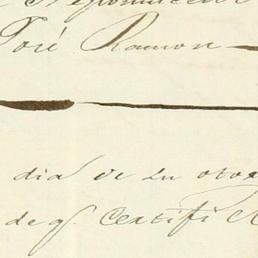 José Ramon
dia de su otor
de q. Certifi